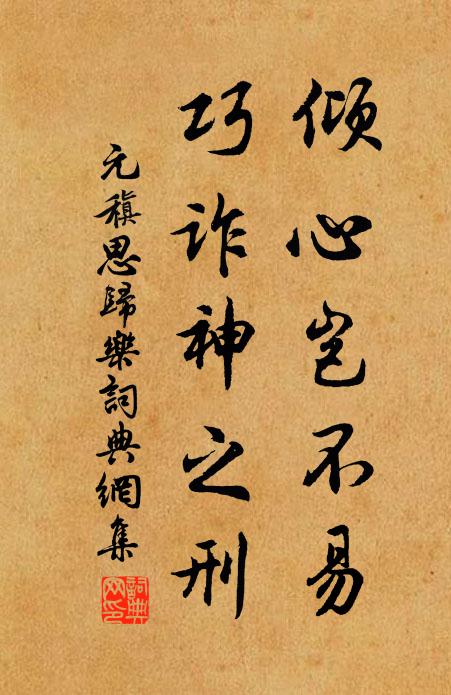 傾心豈不易
巧詐神之刑
元稹思歸樂詞典網集
詞典網印